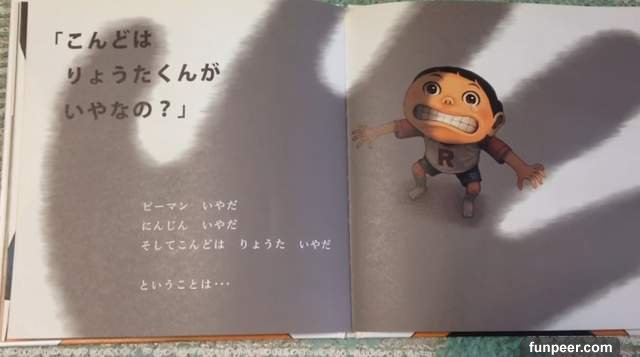 「こんどは
りょうたくんが
いやなの？」
ピーマン　いやだ
にんじん　いやだ
そしてこんどは　りょうた　いやだ
ということは・・・
R
funpeer.com